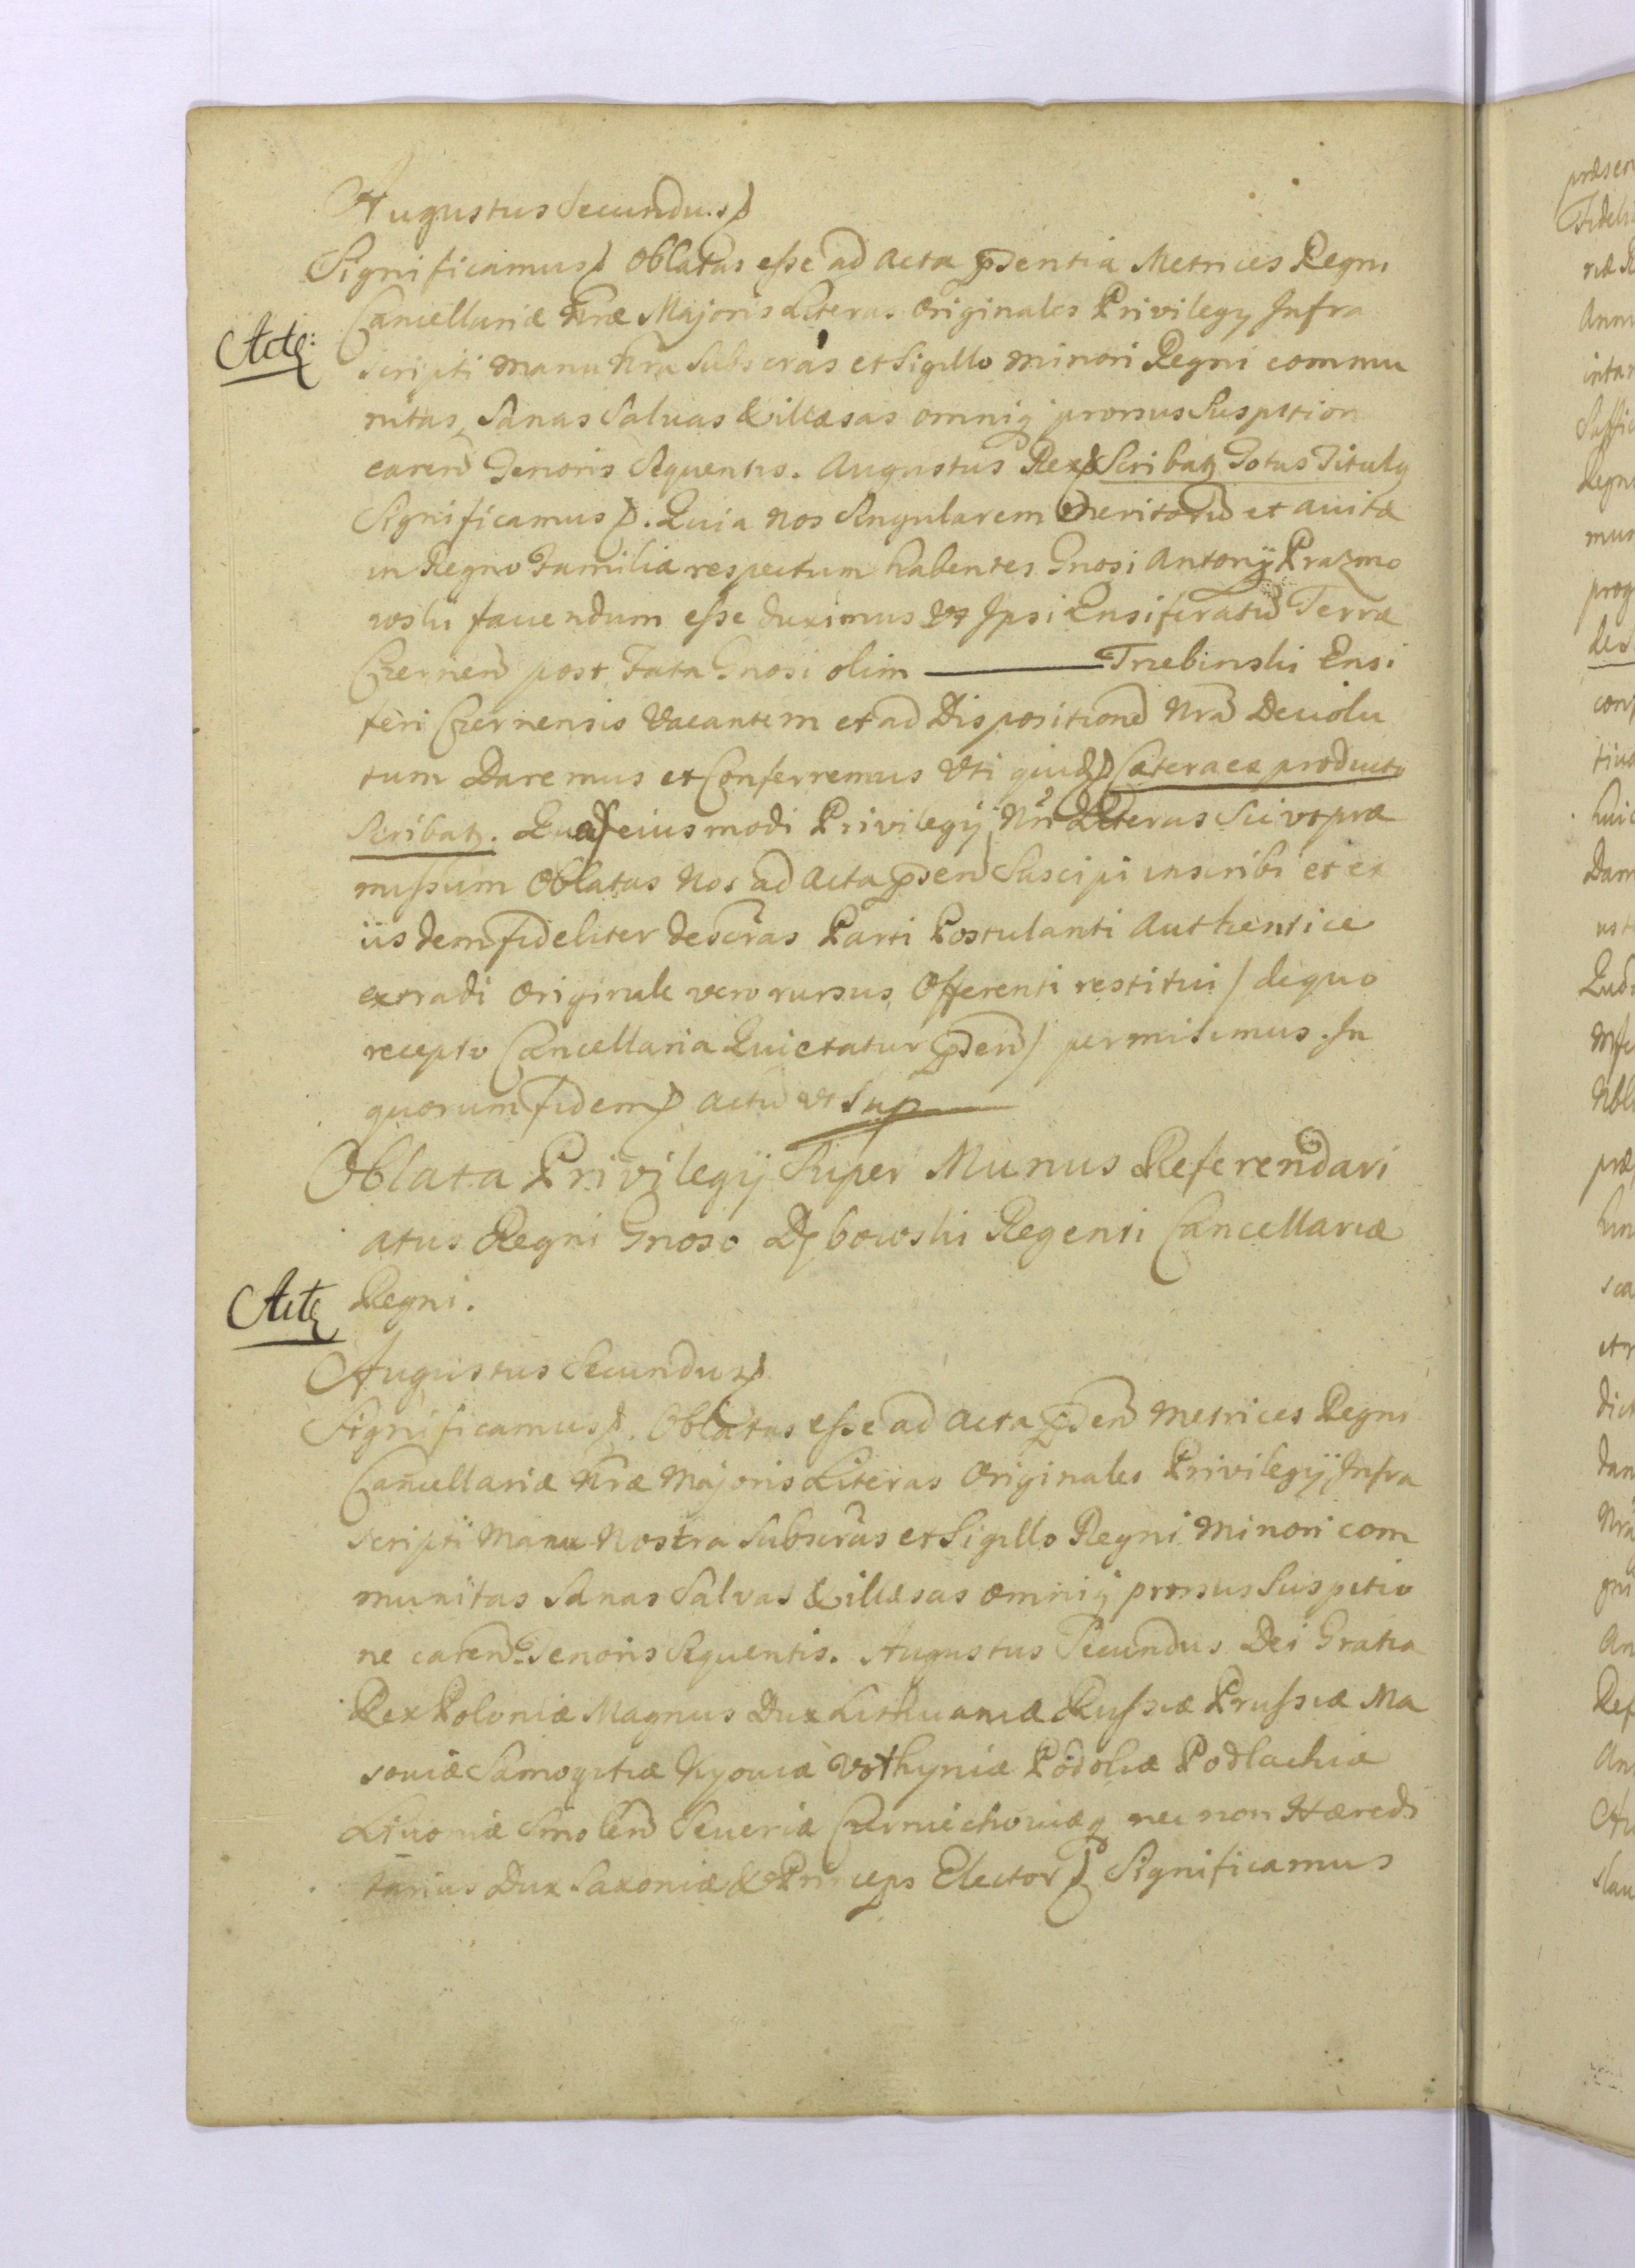 Augustus Secundus
Significamus Oblatas esse ad Acta pñdentia Metrices Regni
Cancellariæ Nræ Majoris Literas Originales Privilegij Infra
Actq:
scripti manu Nra Subscrās et Sigillo minori Regni commu
nitas, Sanas Salvas & illæsas omniq prorsus Suspition
caren̄ Tenoris Sequentis. Augustus Rex Scribatꝫ Totus Titulꝯ
Significamus. Quia nos Singularem Meritorū et avitæ
in Regno Familiæ respectum habentes Gnosi Antonij Prazmo
wski favendum esse duximus Vt Ipsi Ensiferatū Terræ
Czernen̄ post Fata Gnosi olim ——— Trzebinski Ensi
feri Czernensis Vacantem et ad Dispositionē Nrā Devolu
tum Daremus et Conferremus Vti quidem Cætera ex producto
Scribatꝫ. Quas eiusmodi Privilegij Nri Literas Sic vt præ
missum Oblatas Nos ad Acta pñden̄ Suscipi inscribi et ex
iisdem fideliter descrās Parti Postulanti Authentice
extradi Originale vero rursus Offerenti restitui / de quo
recepto Cancellaria Quietatur pñden̄ / permisimus. In
quorum fidem Actū vt Sup
Oblata Privilegij Super Munus Referendari
atus Regni Gnoso Dębowski Regenti Cancellariæ
Actꝫ
Regni.
Augustus Secundus
Significamus. Oblatas esse ad Acta pñden̄ Metrices Regni
Cancellariæ Nræ Majoris Literas Originales Privilegij Infra
scripti Manu Nostra Subscrās et Sigillo Regni Minori com
munitas Sanas Salvas & illæsas omniq prorsus Suspitio
ne caren̄ Tenoris Sequentis. Augustus Secundus Dei Gratia
Rex Poloniæ Magnus Dux Lithuaniæ Russiæ Prussiæ Ma
soviæ Samogitiæ Kyoviæ Volhyniæ Podoliæ Podlachiæ
Livoniæ Smolen̄ Severiæ Czerniechoviæq nec non Hæredi
tarius Dux Saxoniæ & Princeps Elector Significamus